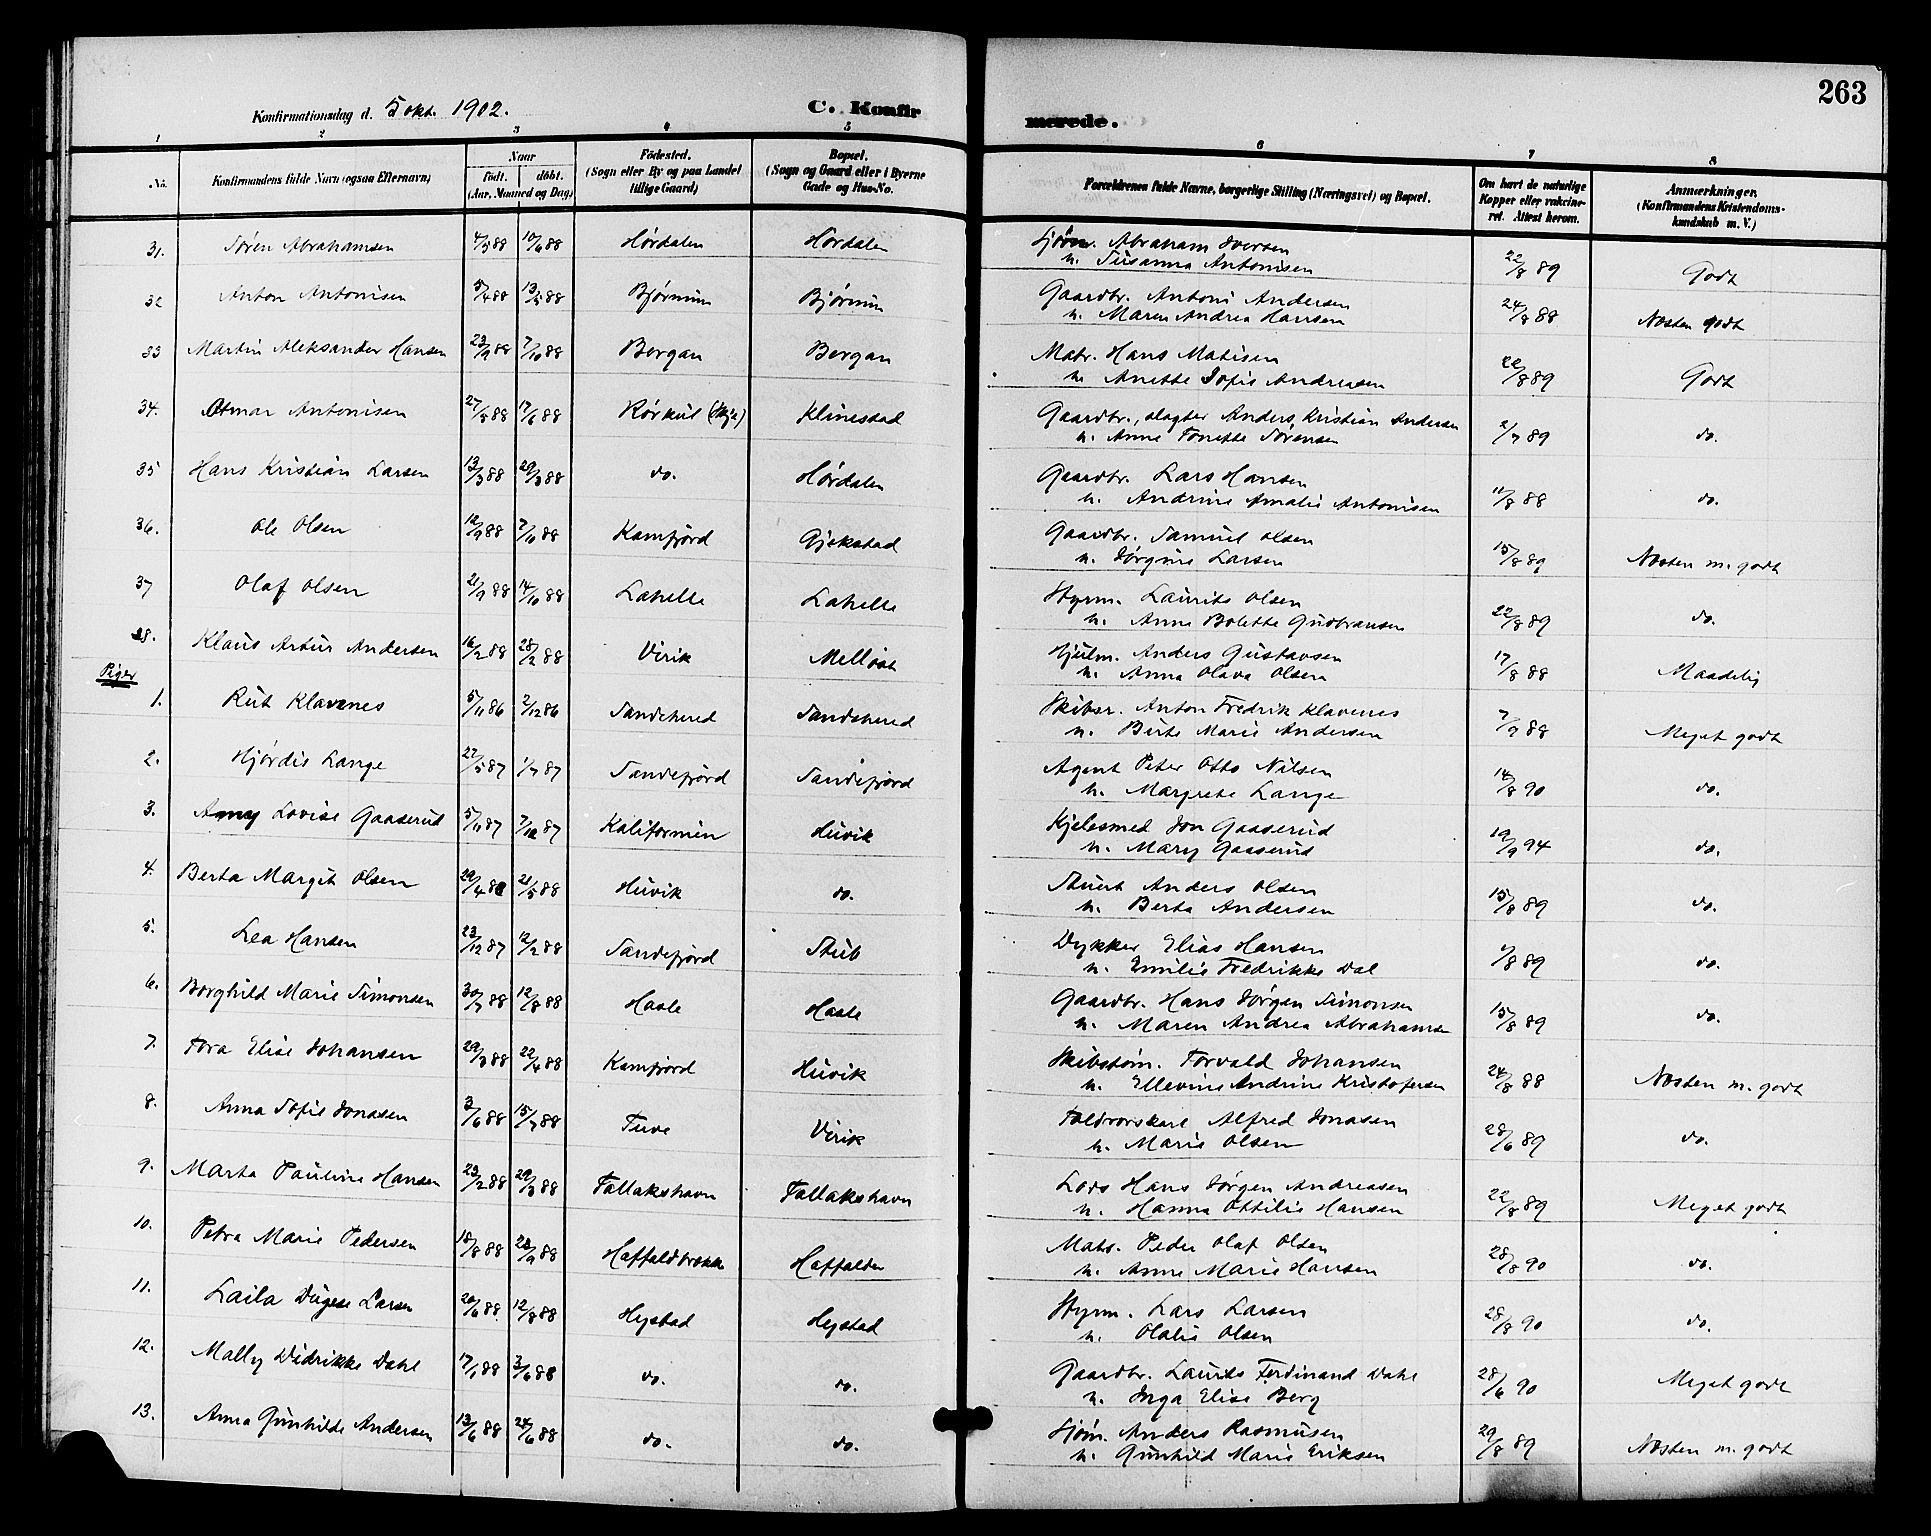 263
Konfirmationsdag d. 5 okt. 1902.
C. Konfirmerede.
1 2 3 4 5 6 7 8
No.
Konfirmandens fulde Navn (ogsaa Efternavn)
Naar
födt. döbt.
(Aar, Maaned og Dag)
Födested.
(Sogn eller By og paa Landet tillige Gaard)
Bopæl.
(Sogn og Gaard eller i Byerne Gade og Hus-No.
Forældrenes fulde Navne, borgerlige Stilling (Næringsvei) og Bopæl.
Om havt de naturlige Kopper eller vakcineret. Attest herom.
Anmærkninger.
(Konfirmandens Kristendomskundskab m. V.)
31. Søren Abrahamsen 4/5 88 10/6 88 Hørdalen Hørdalen Sjøm. Abraham Iversen 22/8 89 Godt
u. Susanna Antonisen
32 Anton Antonisen 5/4 88 13/5 88 Bjørnum Bjørnum Gaardbr. Antoni Andersen 24/8 88 Næsten godt
u. Maren Andrea Hansen
33 Martin Aleksander Hansen 23/9 88 7/10 88 Bergan Bergan Matr. Hans Matisen 22/8 89 Godt
u. Anette Sofie Andreasen
34. Otmar Antonisen 27/5 88 17/6 88 Rørkul Klinestad Gaardbr., slagter Anders Kristian Andersen 2/7 89 do.
u. Anne Tonette Sørensen
35 Hans Kristian Larsen 13/3 88 29/3 88 do. Hørdalen Gaardbr. Lars Hansen 11/8 88 do.
u. Andrine Amalie Antonisen
36. Ole Olsen 12/9 88 7/10 88 Kamfjord Gjekstad Gaardbr. Samuel Olsen 15/8 89 Næsten m. godt
u. Jørgine Larsen
37 Olaf Olsen 21/9 88 14/10 88 Lahelle Lahelle Styrm. Laurits Olsen 22/8 89 do.
u. Anne Bolette Gudbransen
38. Klaus Artur Andersen 16/2 88 28/2 88 Virik Melløst Hjulm. Anders Gustavsen 17/8 88 Maadelig
u. Anna Olava Olsen
Piger
1. Rut Klavenes 5/11 86 2/12 86 Sandeherred Sandeherred Skibsr. Anton Fredrik Klavenes 7/9 88 Meget godt
u. Birte Marie Andersen
2. Hjørdis Lange 22/5 87 1/7 87 Sandefjord Sandefjord Agent Peter Otto Nilsen 14/8 90 do.
u. Margrete Lange
3. Amy Lovise Gaaserud 5/11 87 7/12 87 Kalifornien Huvik Kjelesmed Jon Gaaserud 19/9 94 do.
u. Mary Gaaserud
4. Berta Margit Olsen 29/4 88 21/5 88 Huvik do. Stuert Anders Olsen 15/8 89 do.
u. Berta Andersen
5. Lea Hansen 23/12 87 12/2 88 Sandefjord Stub Dykker Elias Hansen 1/8 89 do.
u. Emilie Fredrikke Dal
6. Borghild Marie Simonsen 30/7 88 12/8 88 Hasle Hasle Gaardbr. Hans Jørgen Simonsen 15/8 89 do.
u. Maren Andrea Abrahamsen
7. Tora Elise Johansen 29/3 88 22/4 88 Kamfjord Huvik Skibstøm. Torvald Johansen 24/8 88 Næsten m. godt
u. Ellevine Andrine Kristofersen
8. Anna Sofie Jonasen 3/6 88 15/7 88 Tuve Virik Foldvorskarl Alfred Jonasen 28/6 89 do.
u. Marie Olsen
9. Marta Pauline Hansen 23/2 88 29/3 88 Tallakshavn Tallakshavn Lods Hans Jørgen Andreasen 22/8 89 Meget godt
u. Hanna Ottilie Hansen
10. Petra Marie Pedersen 18/8 88 23/9 88 Haffaldbrække Haffalden Matr. Peder Olaf Olsen 28/8 90 do.
u. Anne Marie Hansen
11. Laila Dugese Larsen 20/6 88 12/8 88 Hystad Hystad Styrm. Lars Larsen 28/8 90 do.
u. Olalie Olsen
12. Mally Didrikke Dahl 17/1 88 3/6 88 do. do. Gaardbr. Laurits Ferdinand Dahl 28/6 90 Meget godt
u. Inga Elise Berg
13. Anna Gunhilde Andersen 13/6 88 24/6 88 do. do. Sjøm. Anders Rasmusen 29/8 89 Næsten m. godt
u. Gunhild Marie Eriksen